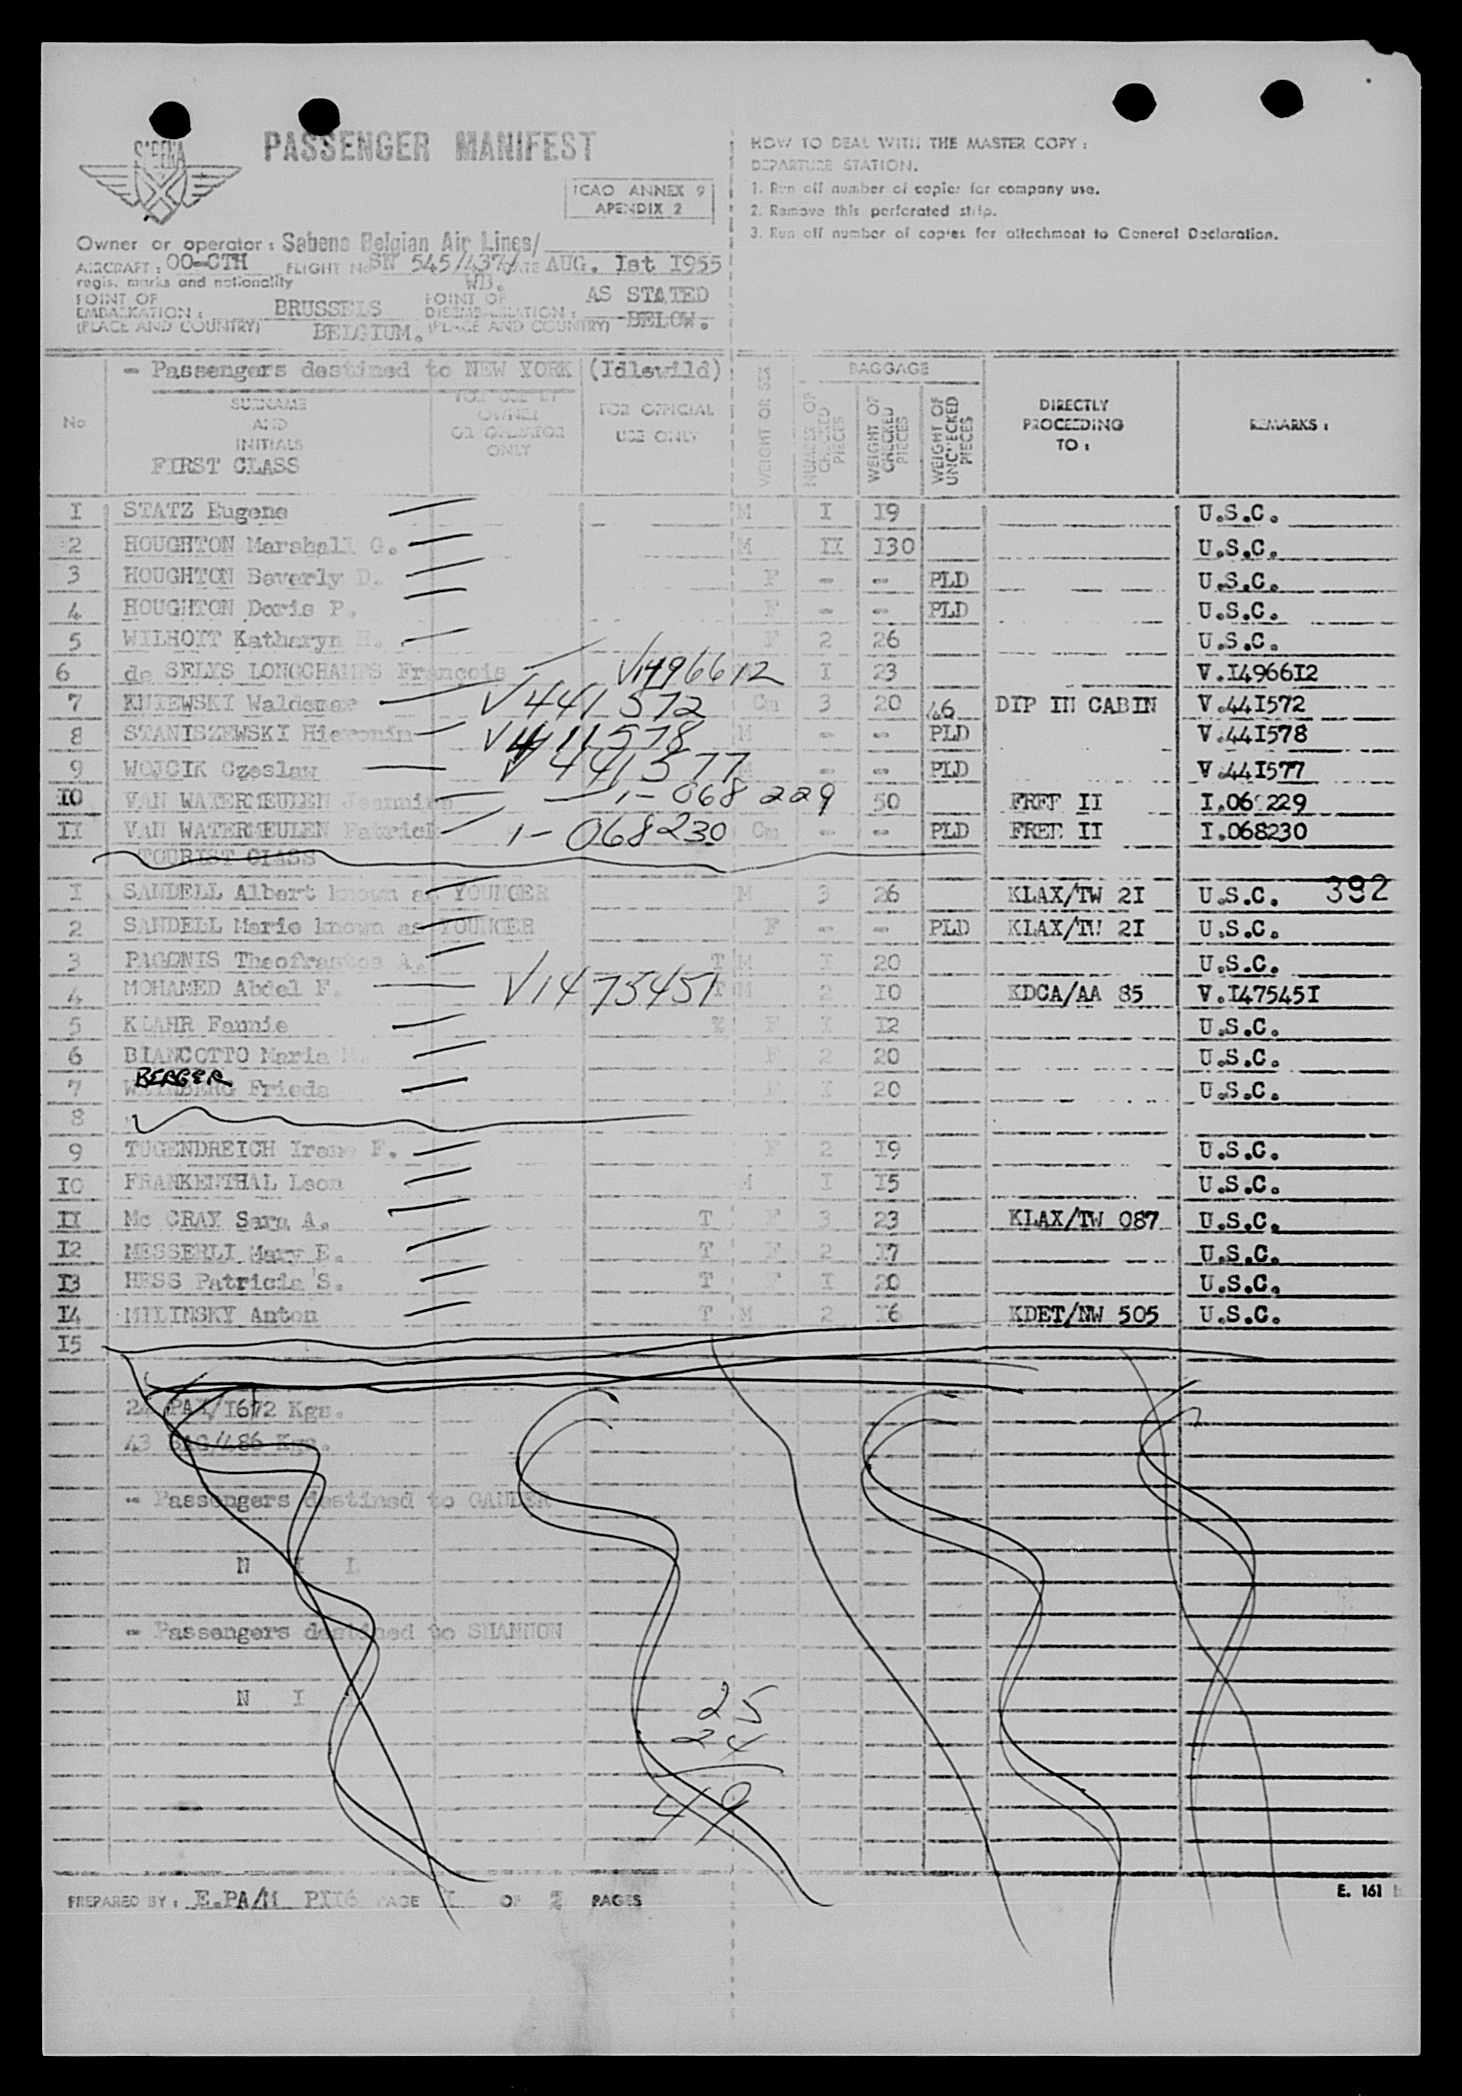 SABENA
PASSENGER MANIFEST
ICAO ANNEX 9
APENDIX 2
HOW TO DEAL WITH THE MASTER COPY :
DEPARTURE STATION.
1. Run off number of copies for company use.
2. Remove this perforated strip.
3. Run off number of copies for attachment to General Declaration.
Owner or operator : Sabena Belgian Air Lines/
AIRCRAFT : OO-CTH FLIGHT No SN 545/437/ DATE AUG. Ist I955
regis. marks and nationality WB.
POINT OF EMBARKATION : (PLACE AND COUNTRY) BRUSSELS BELGIUM.
POINT OF DISEMBARKATION : (PLACE AND COUNTRY) AS STATED BELOW.
- Passengers destined to NEW YORK (Idlewild)
No SURNAME AND INITIALS FOR USE BY OWNER OR OPERATOR ONLY FOR OFFICIAL USE ONLY WEIGHT OR SEX BAGGAGE NUMBER OF CHECKED PIECES WEIGHT OF CHECKED PIECES WEIGHT OF UNCHECKED PIECES DIRECTLY PROCEEDING TO : REMARKS :
FIRST CLASS
I STATZ Eugene M I I9 U.S.C.
2 HOUGHTON Marshall G. M II I30 U.S.C.
3 HOUGHTON Beverly D. F - - PLD U.S.C.
4 HOUGHTON Doris P. F - - PLD U.S.C.
5 WILHOIT Katharyn H. F 2 26 U.S.C.
6 de SELYS LONGCHAMPS François V1496612 I 23 V.I4966I2
7 KNIEWSKI Waldemar V441572 Cm 3 20 46 DIP IN CABIN V.44I572
8 STANISZEWSKI Hieronim V441578 M - - PLD V.44I578
9 WOJCIK Czeslaw V441577 M - - PLD V.44I577
IO VAN WATERMEULEN 1-068229 50 FREE II I.068229
II VAN WATERMEULEN Patrick 1-068230 Cm - - PLD FREE II I.068230
TOURIST CLASS
I SANDELL Albert known as YOUNGER M 3 26 KLAX/TW 2I U.S.C. 392
2 SANDELL Marie known as YOUNGER F - - PLD KLAX/TW 2I U.S.C.
3 PAGONIS Theofrastos A. T M I 20 U.S.C.
4 MOHAMED Abdel F. V1475451 T M 2 IO KDCA/AA 85 V.I47545I
5 KLAHR Fannie F I I2 U.S.C.
6 BIANCOTTO Maria F 2 20 U.S.C.
BERGER
7 Frieda F I 20 U.S.C.
8
9 TUGENDREICH Irene F. F 2 I9 U.S.C.
IO FRANKENTHAL Leon M I I5 U.S.C.
II Mc CRAY Sara A. T F 3 23 KLAX/TW 087 U.S.C.
I2 MESSERLI Mary E. T F 2 I7 U.S.C.
I3 HESS Patricia S. T F I 20 U.S.C.
I4 MILINSKY Anton T M 2 I6 KDET/NW 505 U.S.C.
I5
PAX/I672 Kgs.
43 BAG/486 Kgs.
- Passengers destined to GANDER
N I L
- Passengers destined to SHANNON
N I
25
24
49
PREPARED BY : E.PA/ PAGE I OF 2 PAGES
E. 161